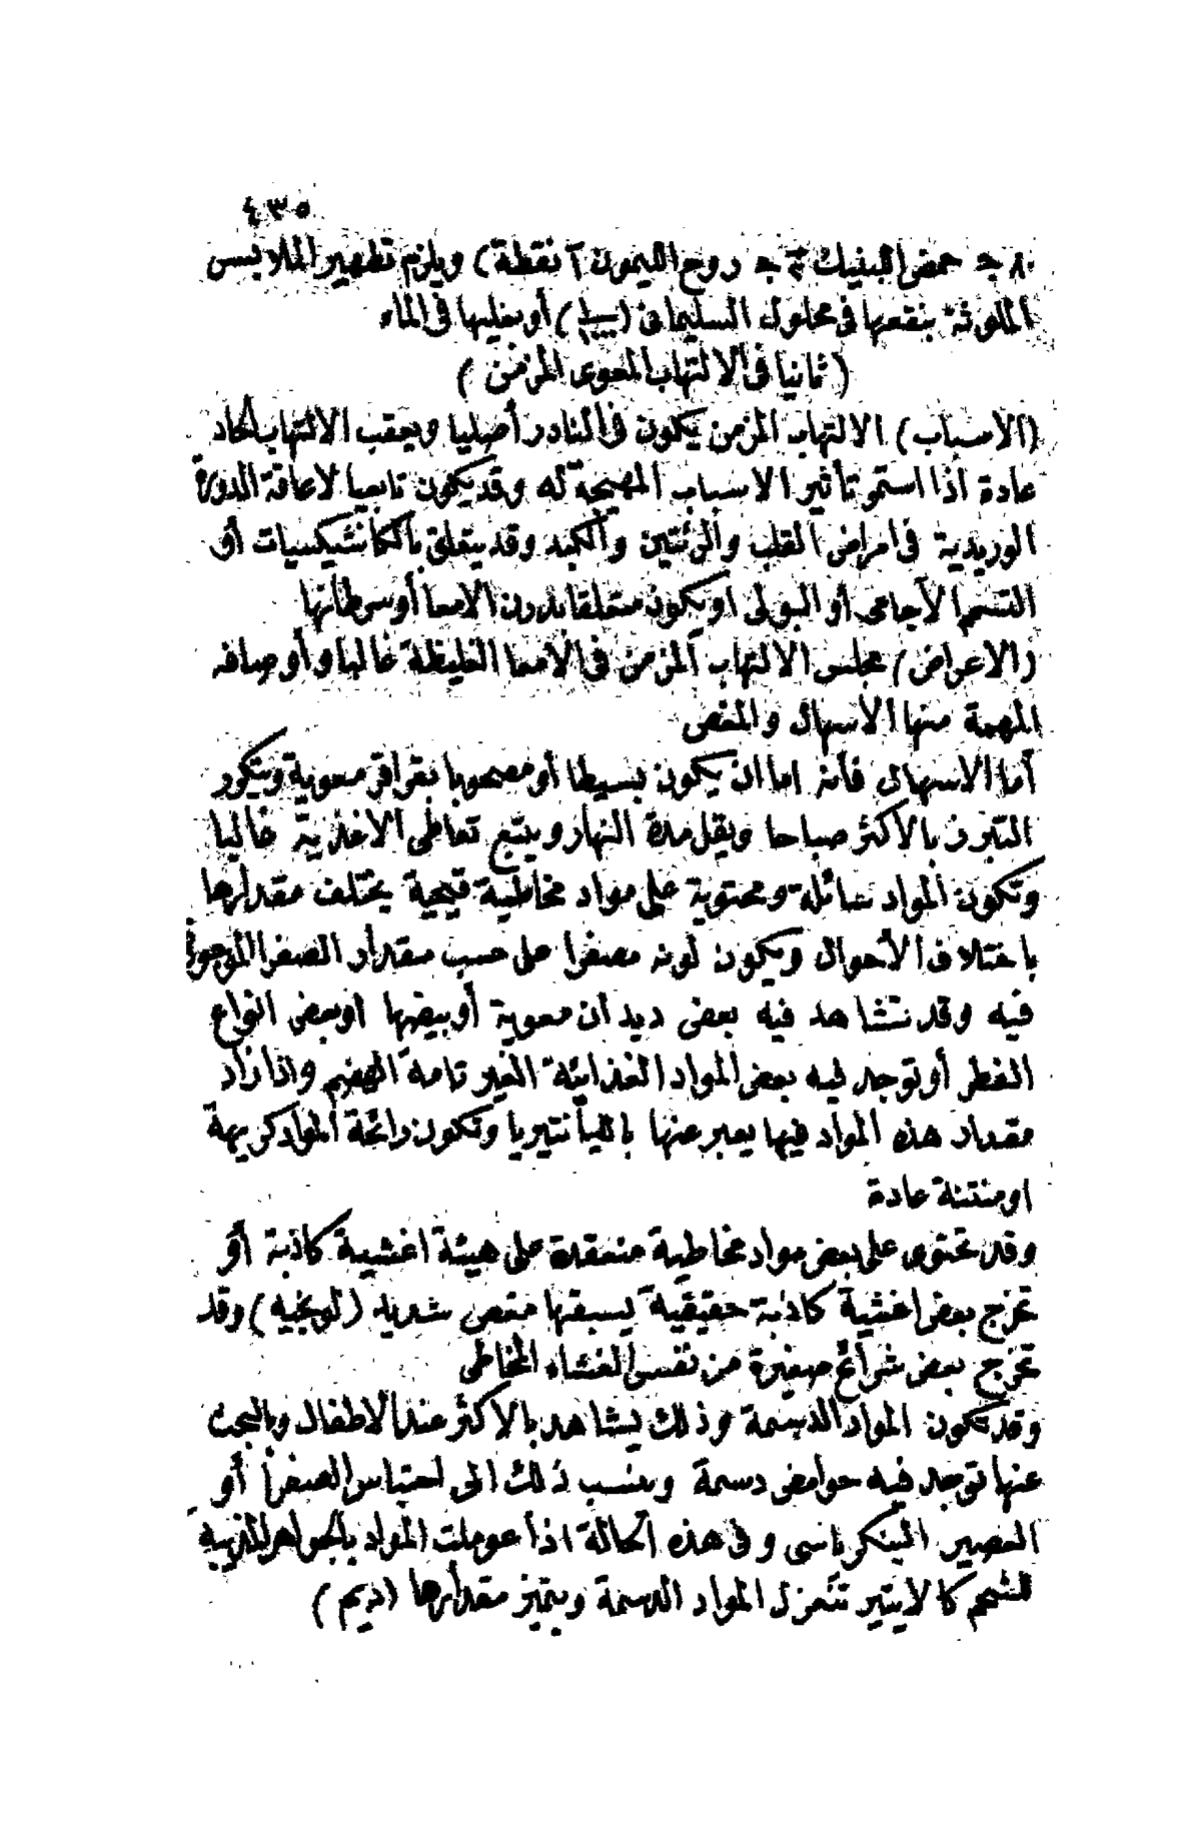 ٤٣٥
٨٠ جـ حمض البنيك جـ روح الليمون نقطة) ويلزم تطهير الملابس
الملوثة بنقعها فى محلول السليمانى ( ) أو بغليها فى الماء
(ثانيا فى الالتهاب المعوى المزمن)
(الاسباب) الالتهاب المزمن يكون فى النادر أصليا ويعقب الالتهاب الحاد
عادة اذا استمر تأثير الاسباب المهيجة له وقد يكون تابعيا لاعاقة الدورة
الوريدية فى امراض القلب والرئتين والكبد وقد يتعلق بالكاشيكسيات أو
التسمم الآجامى أو البولى او يكون متعلقا بدرن الامعا أو سرطانها
(الاعراض) مجلس الالتهاب المزمن فى الامعا الغليظة غالبا وأوصافه
المهمة منها الأسهال والمغص
أما الاسهال فأنه اما ان يكون بسيطا أو مصحوبا بقراقر معوية ويتكرر
التبرز بالأكثر صباحا ويقل مدة النهار ويتبع تعاطى الاغذية غالبا
وتكون المواد سائلة ومحتوية على مواد مخاطية قيحية يختلف مقدارها
باختلاف الأحوال ويكون لونه مصفرا على حسب مقدار الصفرا الموجودة
فيه وقد تشاهد فيه بعض ديدان معوية أو بيضها او بعض انواع
الفطر أو توجد فيه بعض المواد الغذائية الغير تامة الهضم واذا زاد
مقدار هذه المواد فيها يعبر عنها بالليأنتيريا وتكون رائحة المواد كريهة
او منتنة عادة
وقد تحتوى على بعض مواد مخاطية منعقدة على هيئة اغشية كاذبة أو
تخرج بعض اغشية كاذبة حقيقية يسبقها مغص شديد (لويخيه) وقد
تخرج بعض شرائح صغيرة من نفس الغشاء المخاطى
وقد تكون المواد الدسمة وذلك يشاهد بالاكثر عند الاطفال وبالبحث
عنها توجد فيه حوامض دسمة وينسب ذلك الى احتباس الصفرا أو
العصير البنكرياسى وفى هذه الحالة اذا عوملت المواد بالجواهر المذيبة
للشحم كالايتير تنعزل المواد الدسمة ويتميز مقدارها (ديم)